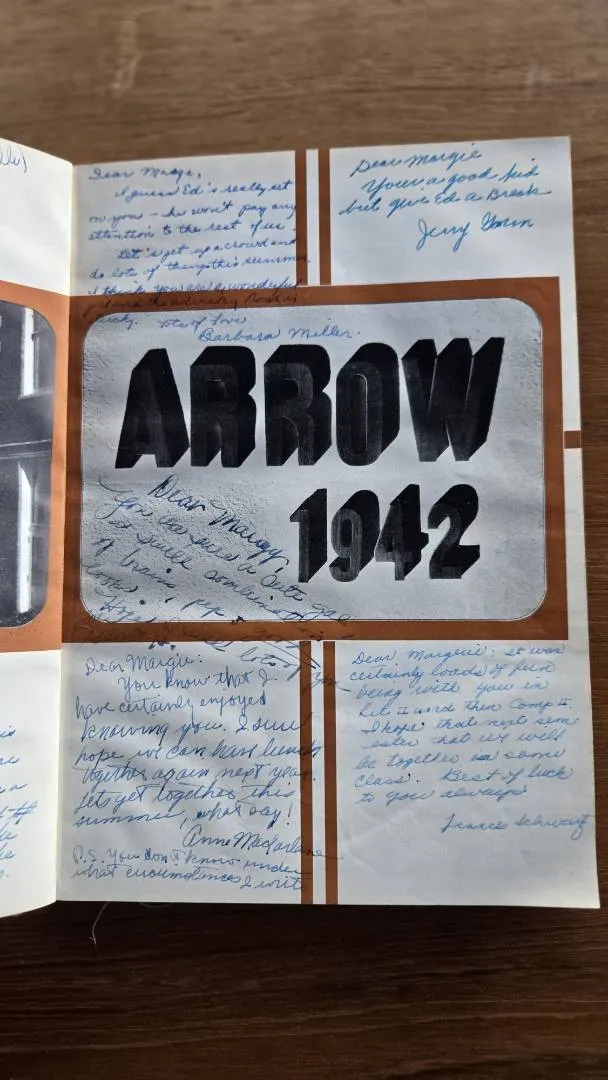 Dear Madge,
I guess Ed's really set
on you – he won't pay any
attention to the rest of us.
Let's get up a crowd and
do lots of things this summer
I think you are a wonderful
girl and the
lucky. lots of love
Barbara Miller.
Dear Margie
Your a good kid
but give Ed a Break
Jerry
ARROW
1942
Dear Margy,
You are such a cute gal
combination
of brains, pep &
looks.
lots of
Dear Margie:
You know that I
have certainly enjoyed
knowing you. I sure
hope we can have lunch
together again next year.
Let's get together this
summer, what say!
Anne MacFarlane
P.S. You don't know under
what circumstances I write
Dear Margerie: it was
certainly loads of fun
being with you in
Lit II and then Comp II.
I hope that next sem
ester that we will
be together in some
class. Best of luck
to you always
Francis Schwartz